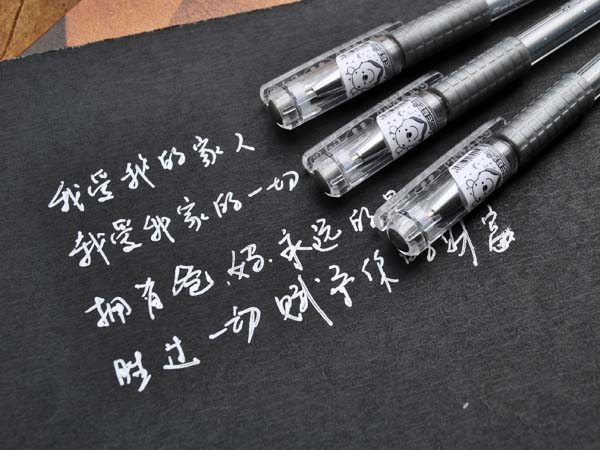 我爱我的家人
我爱我家的一切
拥有爸.妈.永远的
胜过一切赋予你财富